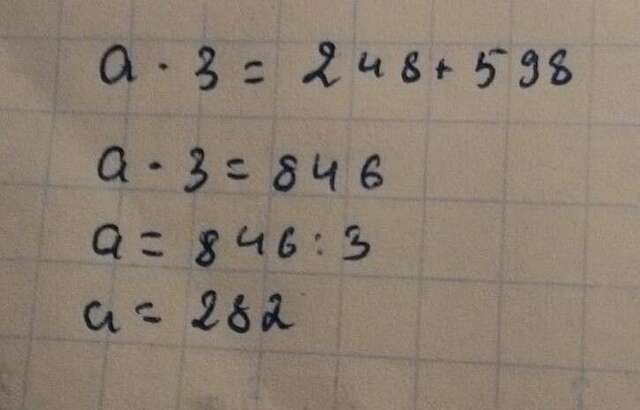 a · 3 = 248 + 598
a · 3 = 846
a = 846 : 3
a = 282